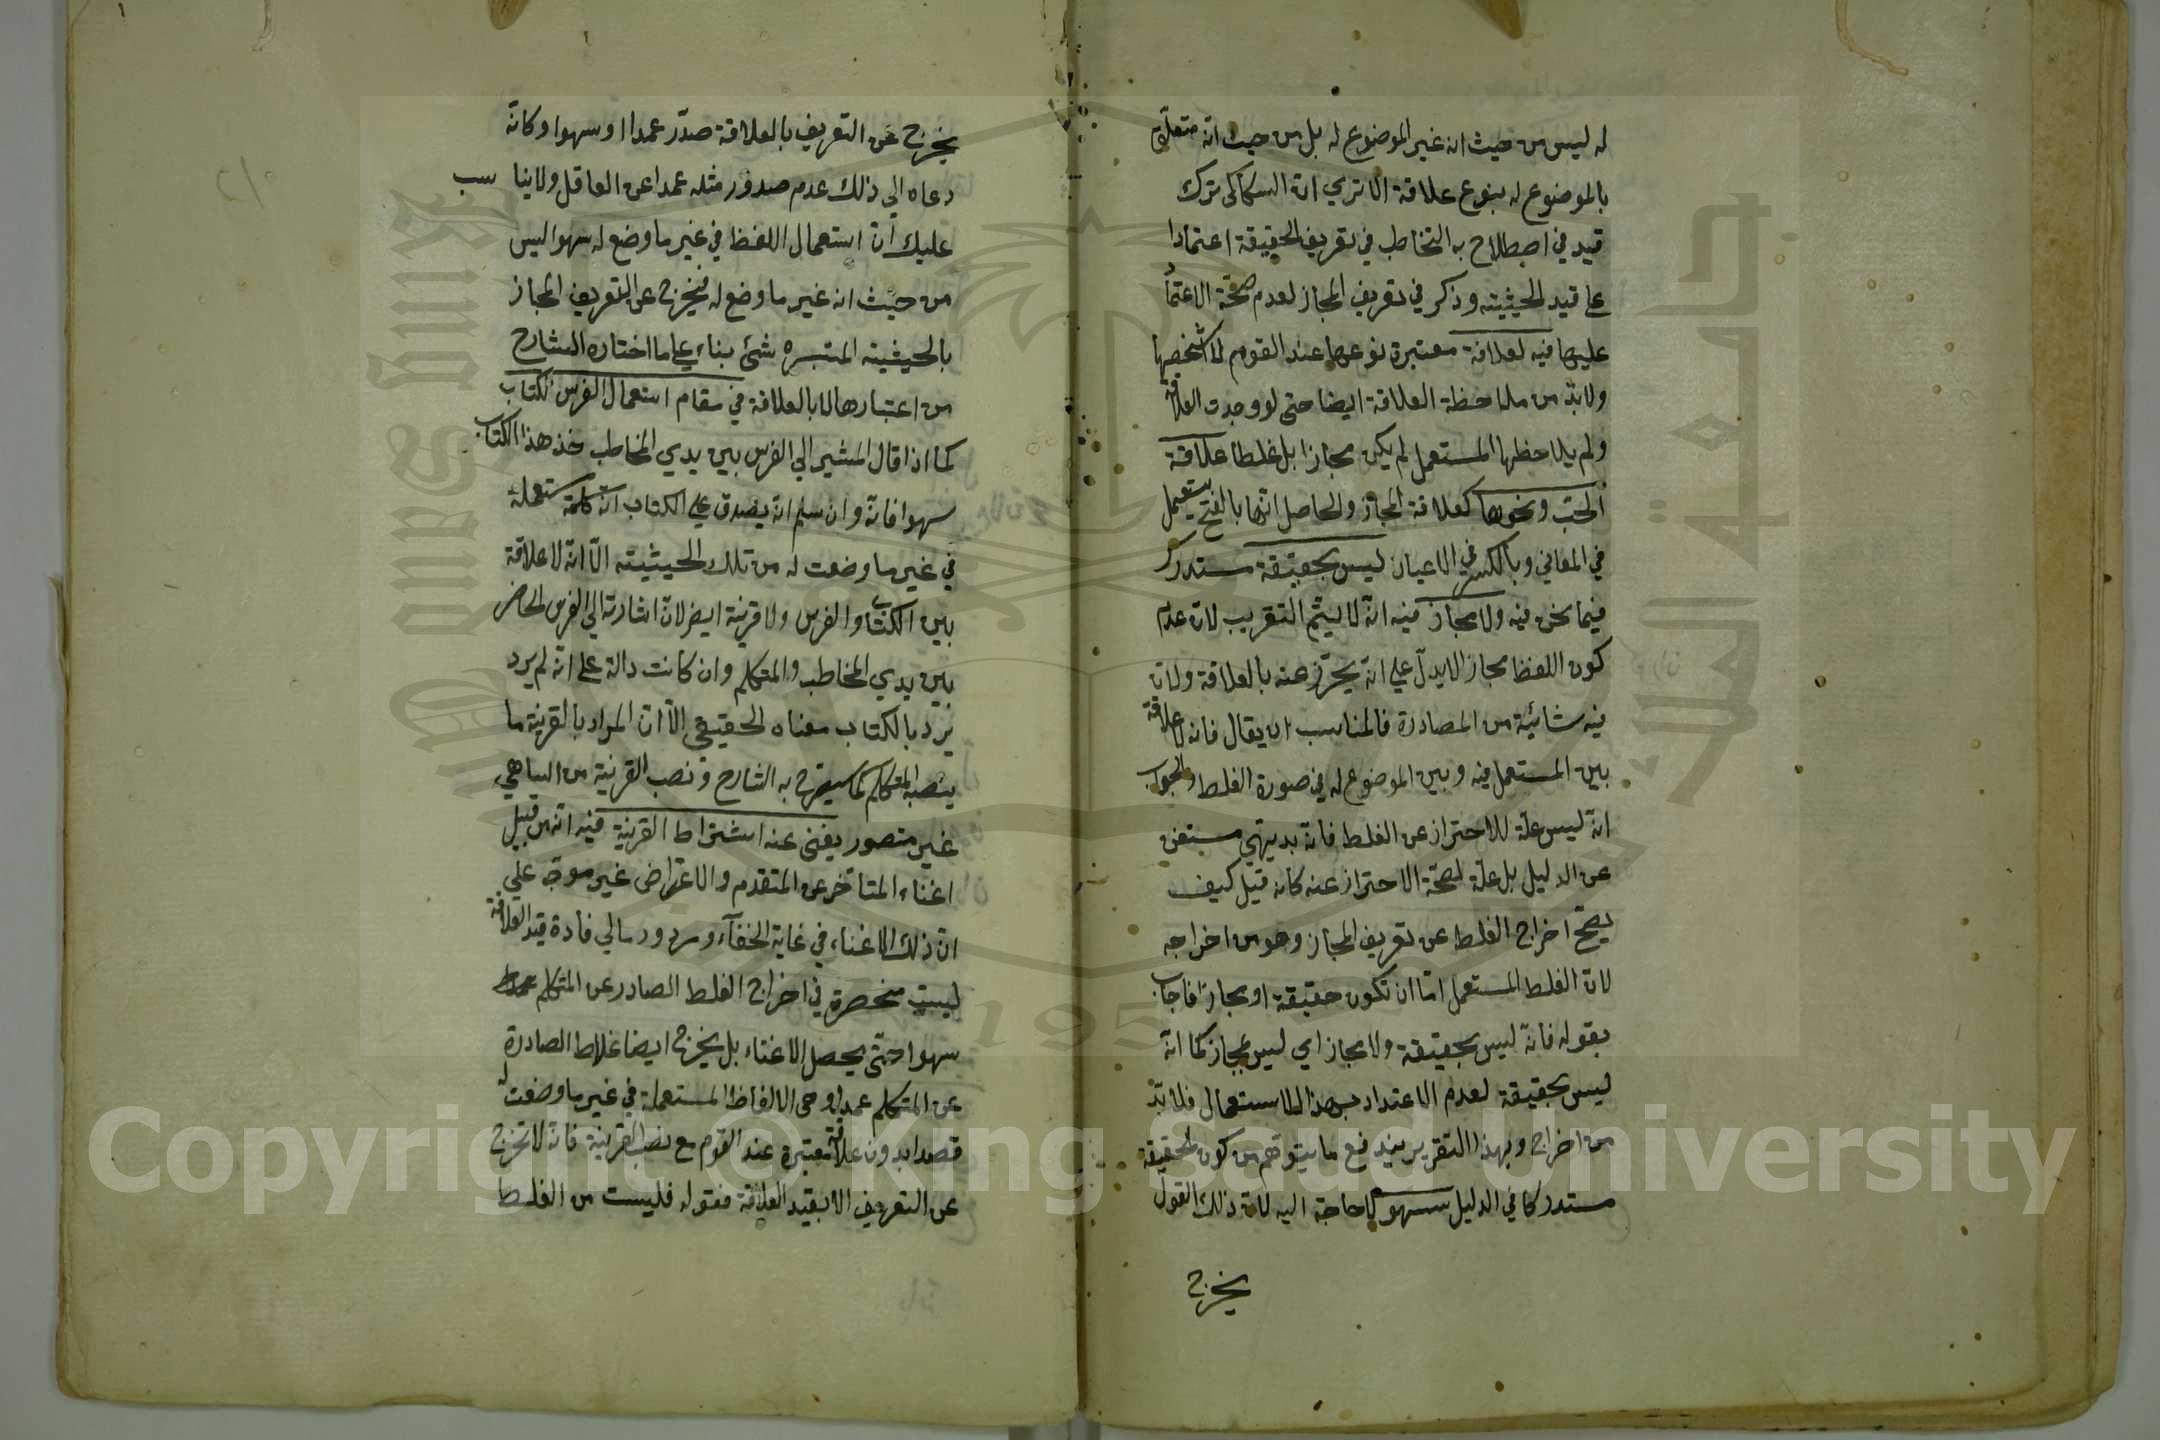 له ليس من حيث انه غير الموضوع له بل من حيث انه متعلق
بالموضوع له بنوع علاقة الا تري ان السكاكي ترك
قيد في اصطلاح به التخاطب في تعريف الحقيقة اعتمادا
علي قيد الحيثيته وذكر في تعريف المجاز لعدم صحة الاعتماد
عليها فيه لعلاقة معتبرة نوعها عند القوم لا شخصها
ولا بد من ملاحظة العلاقة ايضا حتى لو وجدت العلاقة
ولم يلاحظها المستعمل لم يكن مجازا بل غلطا علاقة
الحب ونحوها كعلاقة المجاز والحاصل انها بالفتح يستعمل
في المعاني وبالكسر في الاعيان ليس بحقيقة مستدرك
فيما نحن فيه ولا مجاز فيه انه لا يتم التقريب لان عدم
كون اللفظ مجازا لا يدل علي انه يحترز عنه بالعلاقة ولان
فيه شائبة من المصادرة فالمناسب ان يقال فانه لا علاقة
بين المستعمل فيه وبين الموضوع له في صورة الغلط والجواب
انه ليس علة للاحتراز عن الغلط فانه بديهي مستغن
عن الدليل بل علة لصحة الاحتراز عنه كانه قيل كيف
يصح اخراج الغلط عن تعريف المجاز وهو من اخراجه
لان الغلط المستعمل اما ان تكون حقيقة او مجازا فاجاب
بقوله فانه ليس بحقيقة ولا مجاز اي ليس بمجاز كما انه
ليس بحقيقة لعدم الاعتداد بهذا الاستعمال فلا بد
من اخراج وبهذا التقرير يندفع ما يتوهم من كون الحقيقة
مستدركا في الدليل سهو لا حاجة اليه لان ذلك القول
يخرج
يخرج عن التعريف بالعلاقة صدر عمدا او سهوا وكانه
دعاه الي ذلك عدم صدور مثله عمدا عن العاقل ولا يناسب
عليك ان استعمال اللفظ في غير ما وضع له سهوا ليس
من حيث انه غير ما وضع له فيخرج عن التعريف المجاز
بالحيثيته المعتبره شئ بناء علي ما اختاره الشارح
من اعتبارها لا بالعلاقة في مقام استعمال الفرس لكتاب
كما اذا قال المشير الي الفرس بين يدي المخاطب خذ هذا الكتاب
سهوا فانه وان سلم انه يصدق علي الكتاب انه كلمة مستعملة
في غير ما وضعت له من تلك الحيثيته الا انه لا علاقة
بين الكتاب والفرس ولا قرينة ايضا لان اشارته الي الفرس الحاضر
بين يدي المخاطب والمتكلم وان كانت دالة علي انه لم يرد
يرد بالكتاب معناه الحقيقي الا ان المراد بالقرينة ما
ينصبه المتكلم كما سيصرح به الشارح ونصب القرينة من الساهي
غير متصور يغني عنه اشتراط القرينة فيه انه من قبيل
اغناء المتاخر عن المتقدم والاعتراض غير موجه علي
ان ذلك الاغناء في غاية الخفآء ومردود الي فادة قيد العلاقة
ليست منحصرة في اخراج الغلط الصادر عن المتكلم
سهوا حتي يحصل الاغناء بل يخرج ايضا غلاط الصادرة
عن المتكلم عمدا وهي الالفاظ المستعملة في غير ما وضعت له
قصدا بدون علاقة معتبرة عند القوم مع نصب القرينة فانه لا تخرج
عن التعريف الا بقيد العلاقة فقوله فليست من الغلط
Copyright © King Saud University
King Saud University
جامعة الملك سعود
1957